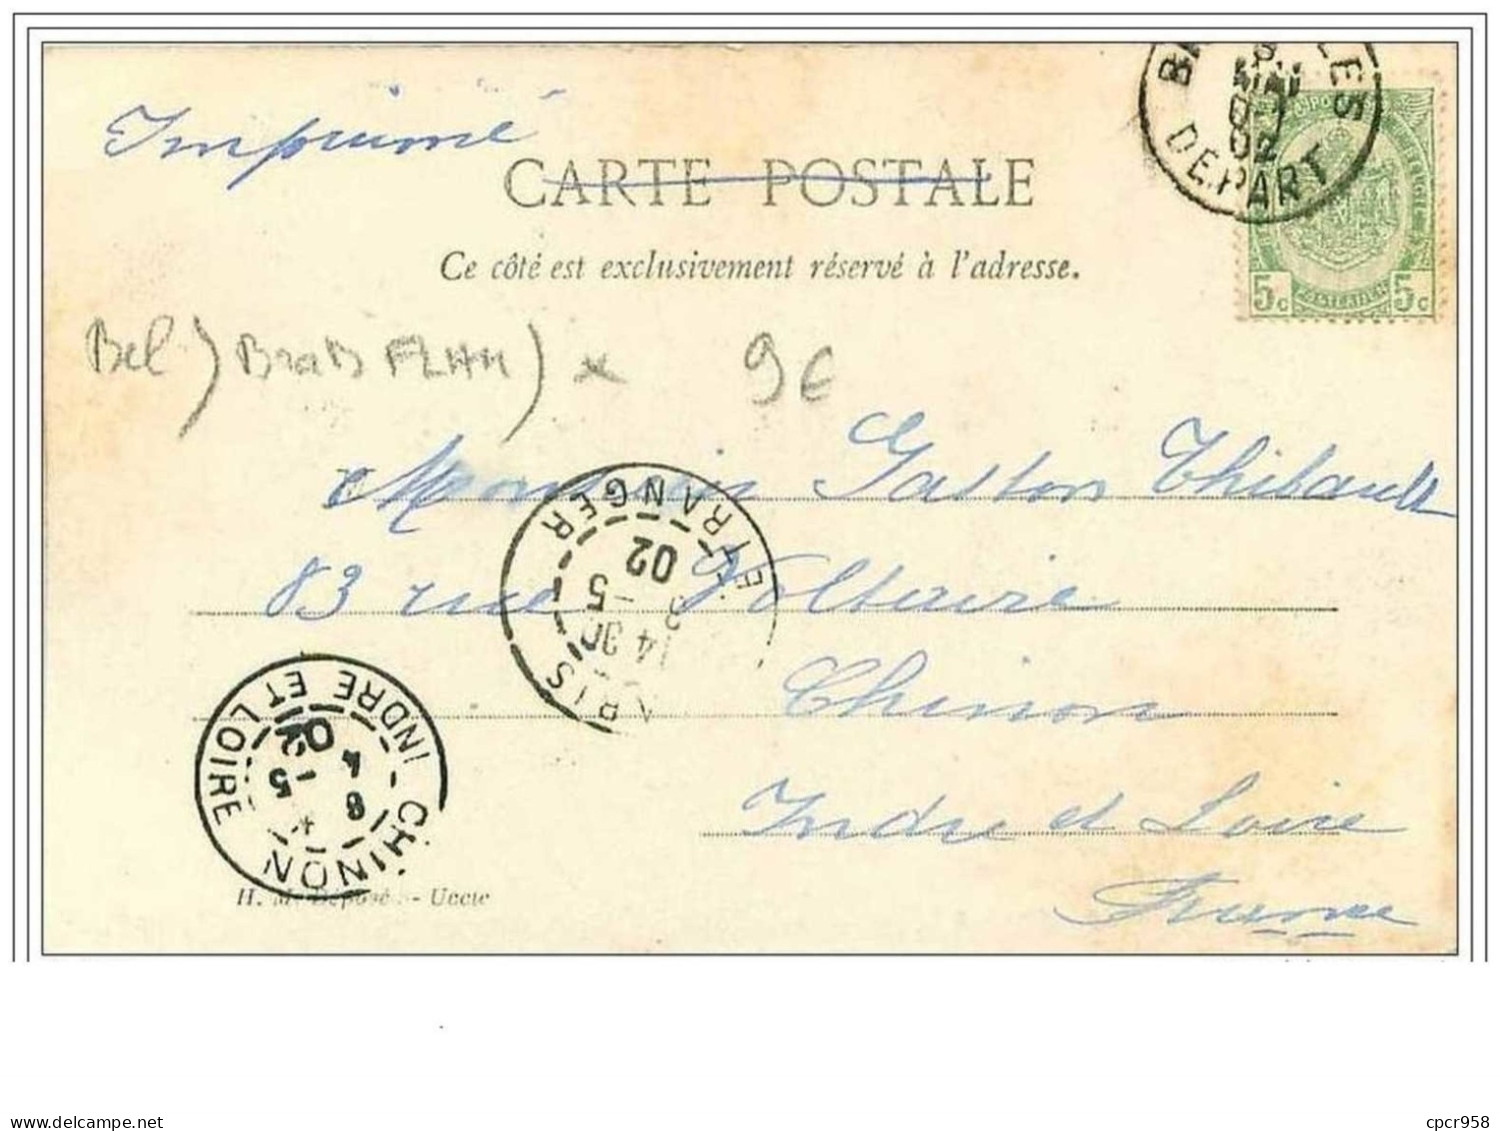 Imprimé
CARTE POSTALE
Ce côté est exclusivement réservé à l'adresse.
DEPART
02
5c 5c
Bel) BraB FLAM) x 9€
Monsieur Gaston Thibault
83 rue Voltaire
Chinon
Indre et Loire
France
ETRANGER
02
5
14 30
CHINON
INDRE ET LOIRE
H. M. Déposé - Uccle
cpcr958